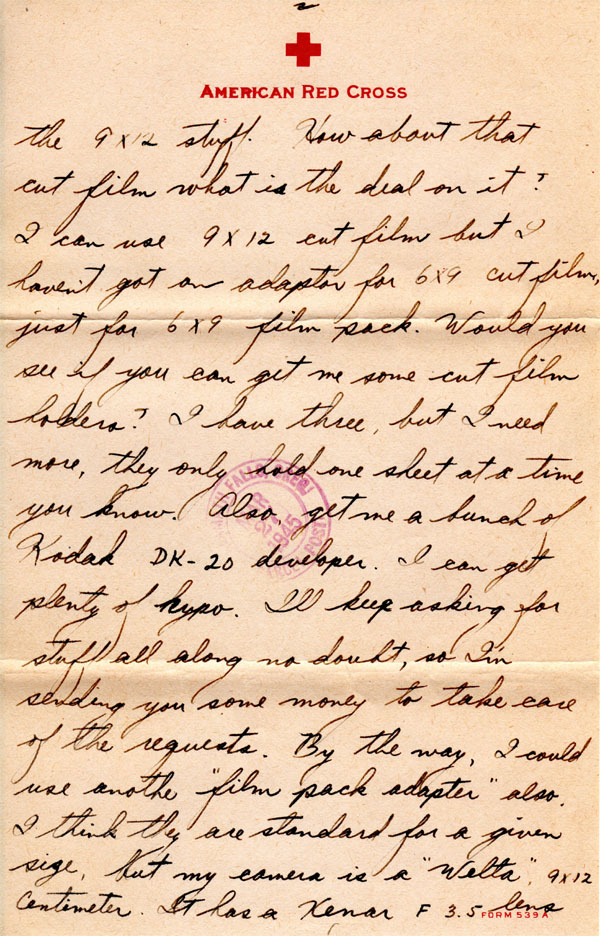 American Red Cross
the 9x12 stuff. How about that
cut film what is the deal on it?
I can use 9x12 cut film but I
haven't got an adaptor for 6x9 cut film,
just for 6x9 film pack. Would you
see if you can get me some cut film
holders? I have three, but I need
more, they only hold one sheet at a time
you know. Also, get me a bunch of
Kodak DK-20 developer. I can get
plenty of hypo. I'll keep asking for
stuff all along no doubt, so I'm
sending you some money to take care
of the requests. By the way, I could
use anothe "film pack adapter" also.
I think they are standard for a given
size, but my camera is a "Welta", 9x12
Centimeter. It has a Xenar F 3.5 lens
FORM 539A
FALLS, OREG.
1945